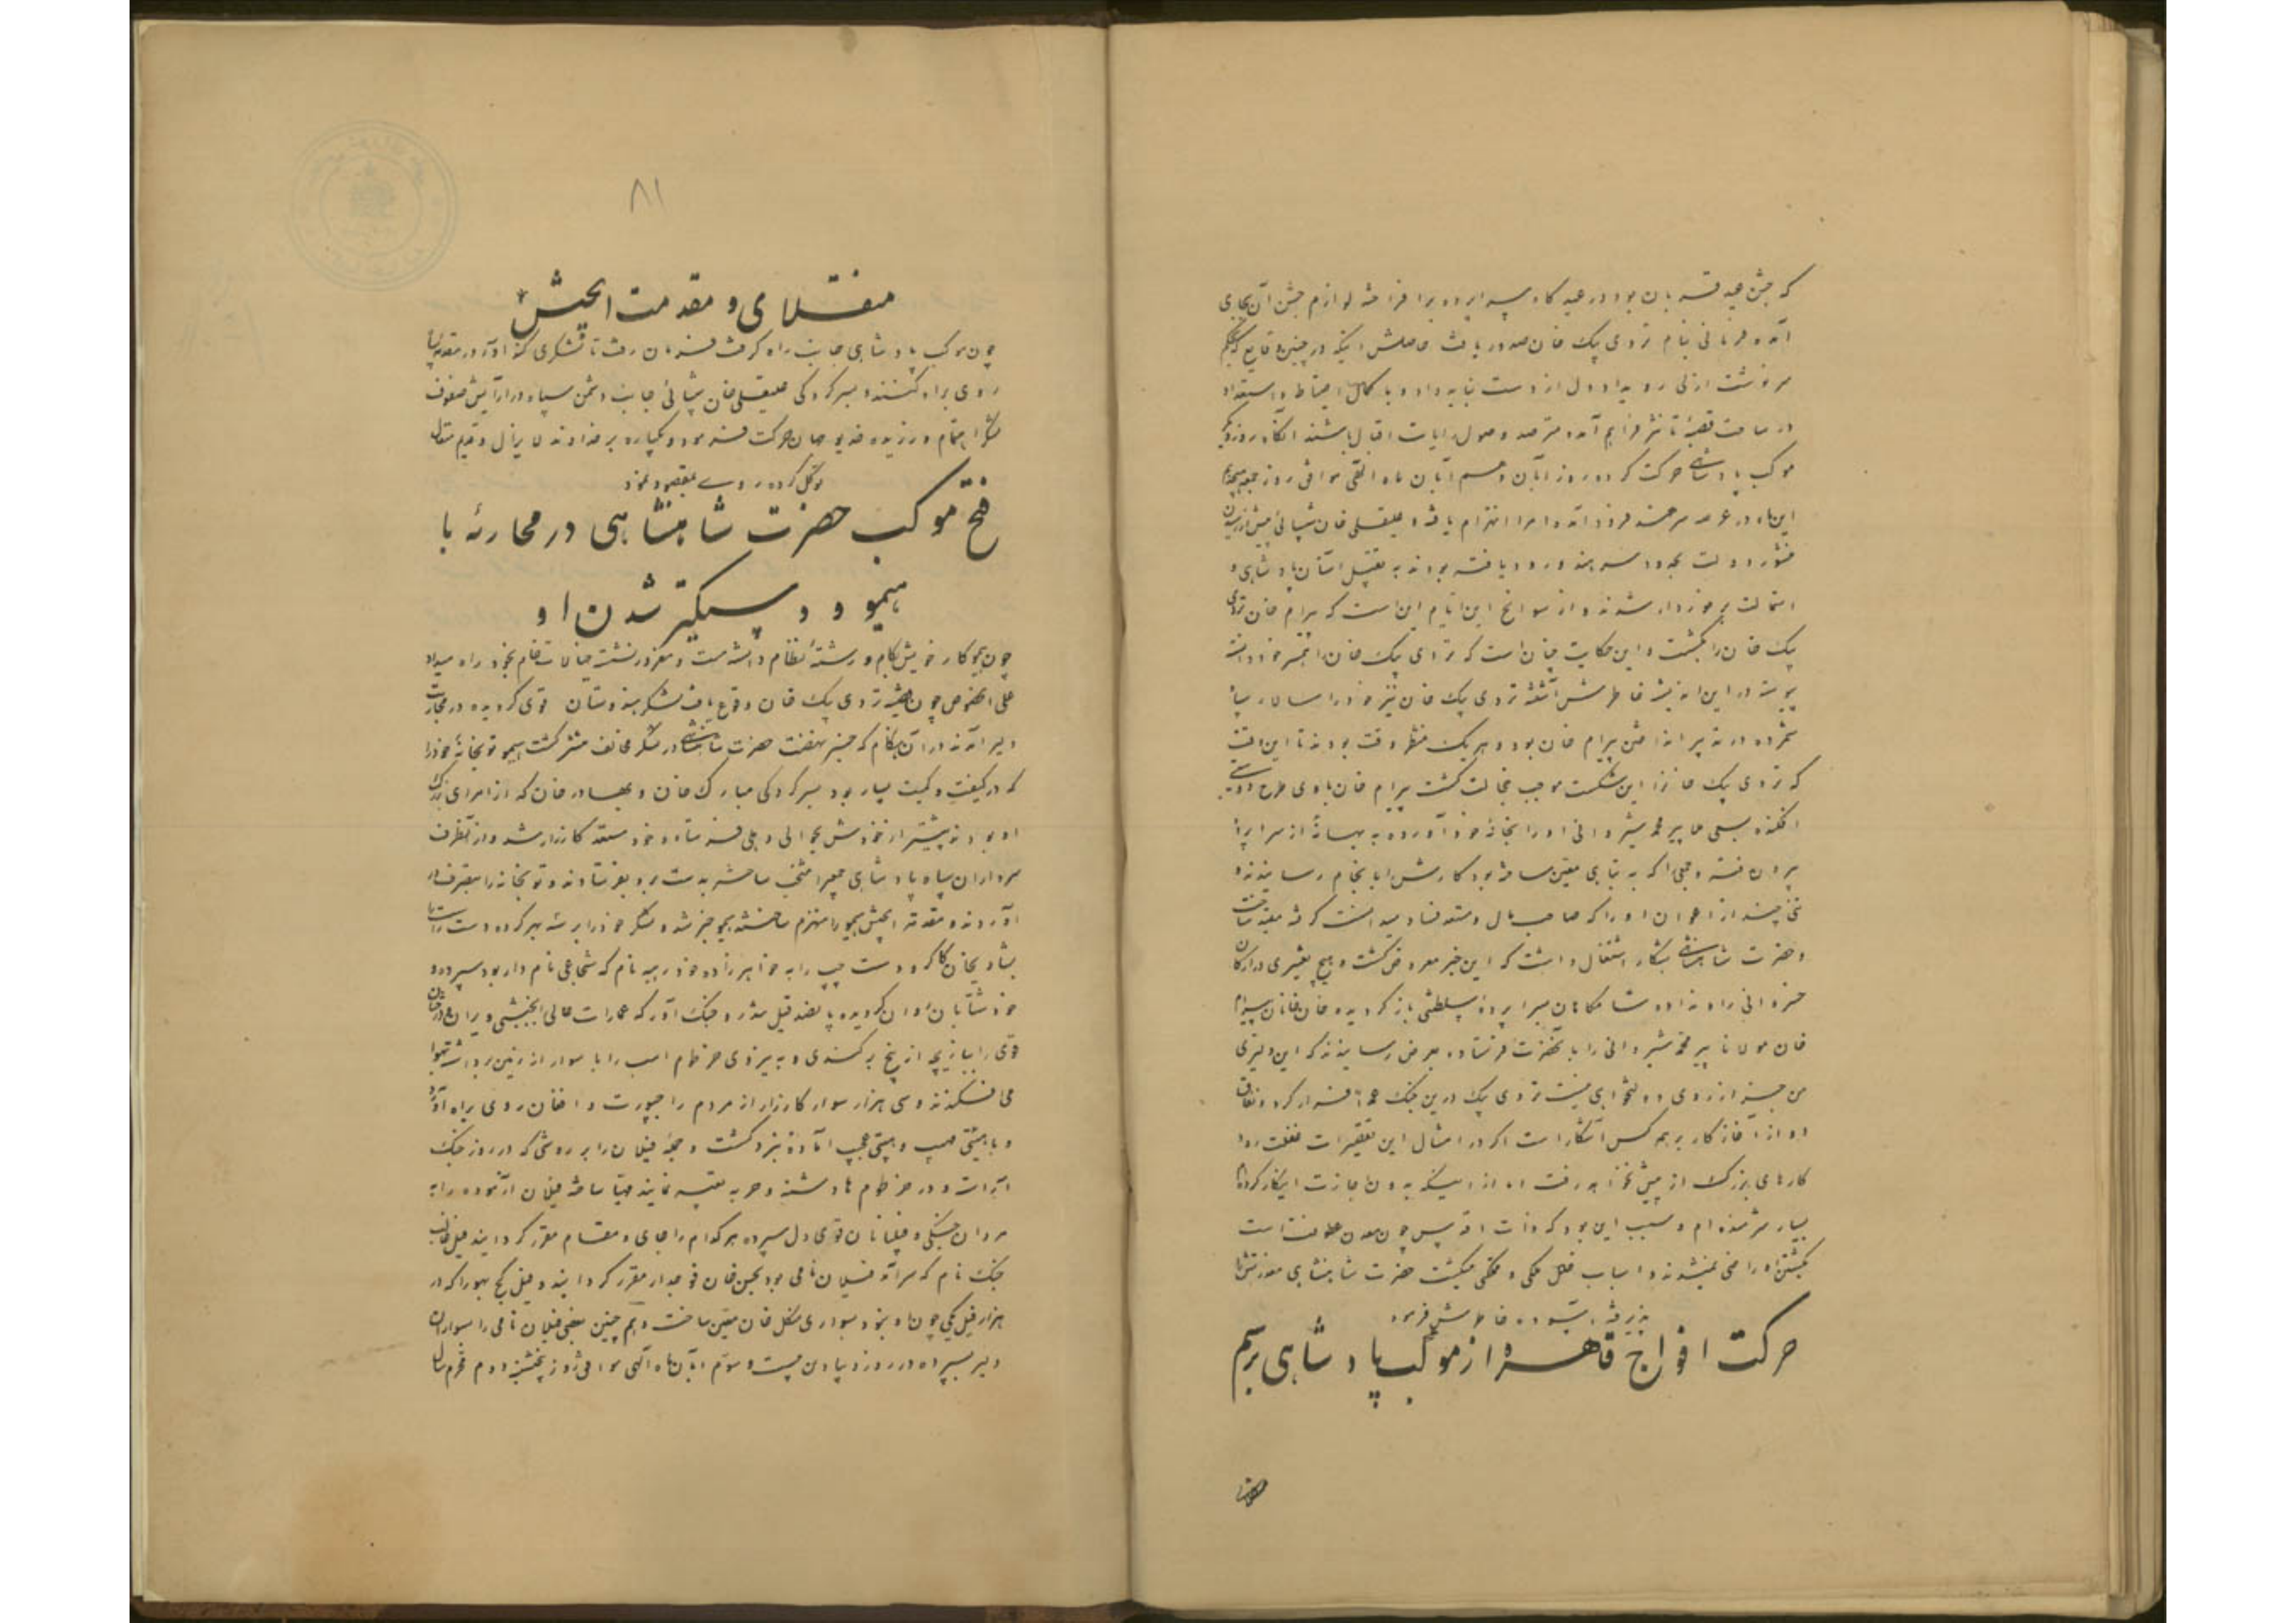 که جشن عید قربان بود در عیدگاه سراپرده برافراخته لوازم جشن آن بجای
آمد و فرمانی بنام تردی بیک خان صدور یافت حاصلش اینکه در چنین وقایع که بحکم
سرنوشت ازلی رو بداد دل از دست نباید داد و با کمال احتیاط و استعداد
در ساحت قصبه تانیسر فراهم آمده مترصد وصول رایات اقبال باشند آنگاه روز دیگر
موکب پادشاهی حرکت کرده روز آبان دهم آبان ماه الهی موافق روز جمعه
این ماه در عرصه سرهند فرود آمد و امرا انهزام یافته و علیقلی خان شیبانی پیش از رسیدن
منشور دولت بحدود سرهند ورود یافته بودند به تقبیل آستان پادشاهی و
استمالت برخوردار شدند و از سوانح این ایام این است که بیرام خان تردی
بیک خان را بکشت و این حکایت چنان است که تردی بیک خان را همسر خود دانسته
پیوسته در این اندیشه خاطرش آشفته تردی بیک خان نیز خود را سالار سپاه
شمرده در تدبیر انداختن بیرام خان بود و هر یک منتظر وقت بودند تا این وقت
که تردی بیک خانرا این شکست موجب خجالت گشت بیرام خان با وی طرح دوستی
افکنده بسعی ملا پیر محمد شیروانی او را بخانه خود آورده به بهانهٔ از سراپرده
بیرون رفته و جمعی را که به تباهی معین ساخته بود کارش را بانجام رسانیدند و
تنی چند از اعوان او را که صاحب مال و مستعد فساد میدانست گرفته مقید ساخت
و حضرت شاهنشاهی بشکار اشتغال داشت که این خبر معروض گشت و هیچ تغییری در ارکان
خسروانی راه نداد و شامگاهان بسراپردهٔ سلطنتی باز گردیده خان خانان بیرام
خان مولانا پیر محمد شیروانی را با نحضرت فرستاده بعرض رسانیدند که این دلیری
من جز از روی دولتخواهی نیست تردی بیک درین جنک عمداً فرار کرد و نفاق
او از آغاز کار بر همه کس آشکار است اگر در امثال این تقصیرات غفلت رود
کارهای بزرگ از پیش نخواهد رفت اما از اینکه بدون اجازت اینکار کرده‌ام
بسیار شرمنده‌ام و سبب این بود که ذات اقدس چون معدن عطوفت است
بکشتن او راضی نمیشدند و اسباب خلل ملکی و ملکی میگشت حضرت شاهنشاهی معذرتش را
پذیرفته آسوده خاطرش فرمود
حرکت افواج قاهره از موکب پادشاهی برسم
۸۱
منقلای و مقدمت الجیش
چون موکب پادشاهی جانب راه گرفت فرمان رفت تا لشکری کند آور در مقدمه سپاه
روی براه کنند و بسرکردگی علیقلی خان شیبانی جانب دشمن سپارد و در آرایش صفوف
لشکر اهتمام ورزیده خدیو جهان حرکت فرمود و یکباره بر خداوند لایزال و قدیم متعال
توکل کرده روی بمقصود نمود
فتح موکب حضرت شاهنشاهی در محاربهٔ با
هیمو و دستگیر شدن او
چون هیمو کار خویش بکام و رشتهٔ نظام دانسته مست و مغرور نشست خیالات خام بخود راه میداد
علی الخصوص چون قضیه تردی بیک خان وقوع یافت لشکر هندوستان قوی گردیده در محاربت
دلیر آمدند در آن هنگام که خبر نهضت حضرت شاهنشاهی در لشکر مخالف منتشر گشت هیمو توپخانهٔ خود را
که در کیفیت و کمیت بسیار بود بسرکردگی مبارک خان و بهادر خان که از امرای بزرگ
او بودند پیشتر از خودش بحوالی دهلی فرستاد و خود مستعد کارزار شد و از آنطرف
سرداران سپاه پادشاهی جمعی را منتخب ساخته به دست برد بفرستادند و توپخانه را بتصرف در
آوردند و مقدمة الجیش هیمو را منهزم ساختند هیمو خبر شد و لشکر خود را بر سه بهر کرده دست راست را
بشادیخان کاکر و دست چپ را به خواهرزاده خود رمیه نام که شجاعی نام دار بود سپرده و
خود شتابان روان گردیده پانصد فیل مست و جنک آور که عمارات عالی را بجنبشی ویران و درختان
قوی را ببازیچه از بیخ برکندی و به نیروی خرطوم اسب را با سوار از زمین برداشته بهوا
می افکندند و سی هزار سوار کارزار از مردم راجپوت و افغان روی براه آورد
و با هیئتی مهیب و هیبتی عجیب آماده نبرد گشت و جمله فیلان را بر روشی که در روز جنک
آراسته و در خرطوم‌ها دشنه و حربه تعبیه نمایند مهیا ساخته فیلان آزموده را به
مردان جنگی و فیلبانان قوی دل سپرده هر کدام را جای و مقام مقرر گردانید فیل غالب
جنک نام که سرآمد فیلان نامی بود بحسن خان فوجدار مقرر گردانید و فیل گج بهور را که در
هزار فیل یکی چون او نبود بسواری میکل خان معین ساخت و هم چنین بعضی فیلان نامی را بسواران
دلیر سپرده در روز دیبادین بیست و سوم آبان ماه الهی موافق روز پنجشنبه دوم محرم سال